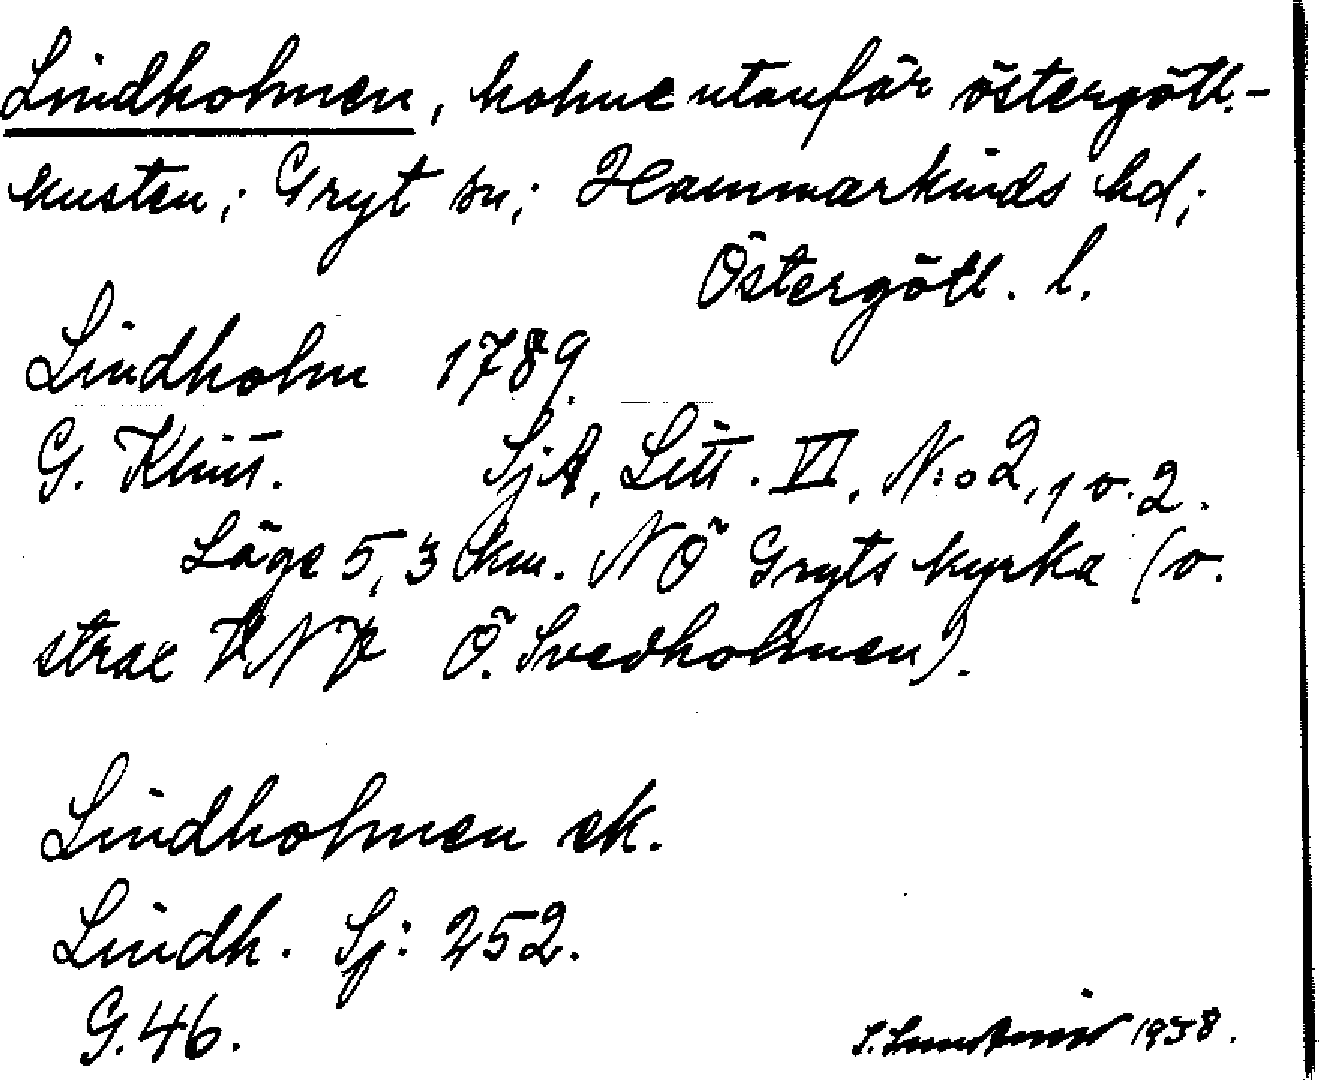 Lindholmen, holme utanför östergötl.-
kusten; Gryt sn; Hammarkinds hd;
Östergötl. l.
Lindholm 1789.
G. Klint. SjA, Litt. VI, N:o 2, 1 o. 2.
Läge 5,3 km. NÖ Gryts kyrka (o.
strax VNV Ö. Svedholmen).
Lindholmen ek.
Lindh. Sj: 252.
G. 46.
1938.